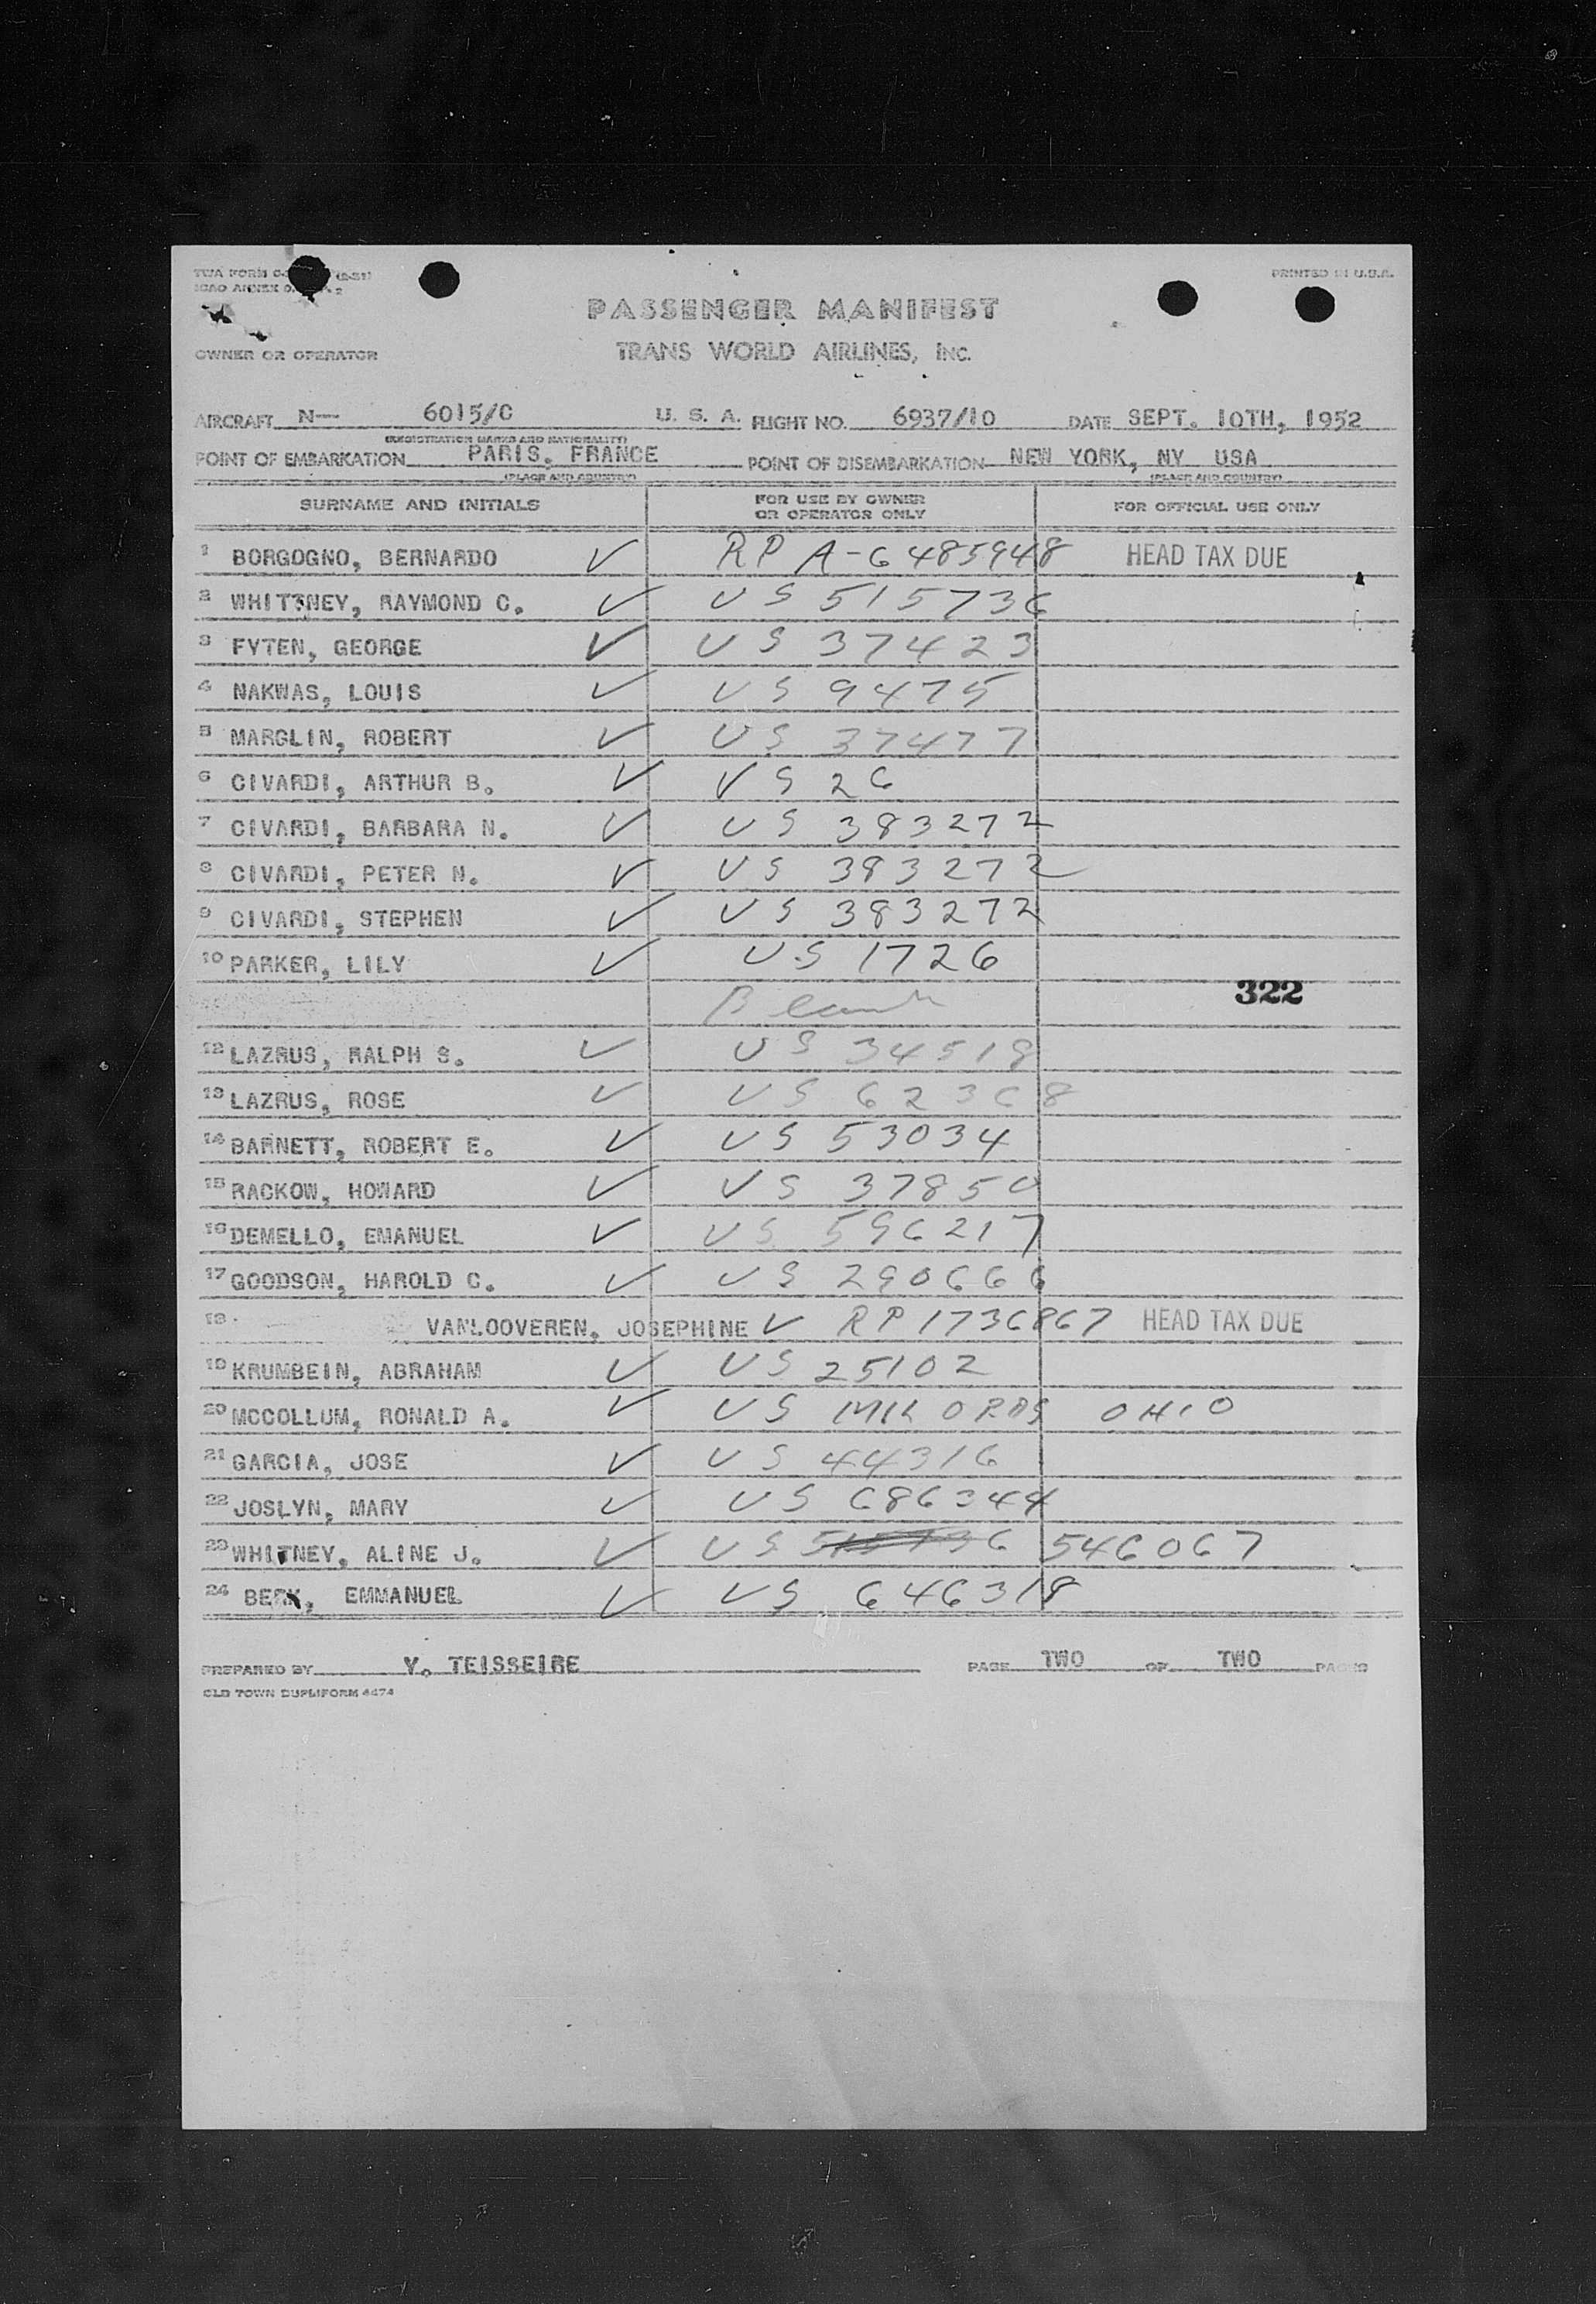 TWA FORM (2-51)
ICAO ANNEX 2
PRINTED IN U.S.A.
PASSENGER MANIFEST
OWNER OR OPERATOR TRANS WORLD AIRLINES, INC.
AIRCRAFT N— 6015/C U. S. A. FLIGHT NO. 6937/10 DATE SEPT. 10TH, 1952
(REGISTRATION MARKS AND NATIONALITY)
POINT OF EMBARKATION PARIS, FRANCE POINT OF DISEMBARKATION NEW YORK, NY USA
(PLACE AND COUNTRY) (PLACE AND COUNTRY)
SURNAME AND INITIALS FOR USE BY OWNER OR OPERATOR ONLY FOR OFFICIAL USE ONLY
1 BORGOGNO, BERNARDO ✓ RP A-6485948 HEAD TAX DUE
2 WHITTNEY, RAYMOND C. ✓ US 515736
3 FYTEN, GEORGE ✓ US 37423
4 NAKWAS, LOUIS ✓ US 9475
5 MARGLIN, ROBERT ✓ US 37477
6 CIVARDI, ARTHUR B. ✓ US 26
7 CIVARDI, BARBARA N. ✓ US 383272
8 CIVARDI, PETER N. ✓ US 383272
9 CIVARDI, STEPHEN ✓ US 383272
10 PARKER, LILY ✓ US 1726
Blank 322
12 LAZRUS, RALPH S. ✓ US 34518
13 LAZRUS, ROSE ✓ US 62368
14 BARNETT, ROBERT E. ✓ US 53034
15 RACKOW, HOWARD ✓ US 37850
16 DEMELLO, EMANUEL ✓ US 596217
17 GOODSON, HAROLD C. ✓ US 290666
18 VANLOOVEREN, JOSEPHINE ✓ RP 1736867 HEAD TAX DUE
19 KRUMBEIN, ABRAHAM ✓ US 25102
20 MCCOLLUM, RONALD A. ✓ US MIL ORDS OHIO
21 GARCIA, JOSE ✓ US 44316
22 JOSLYN, MARY ✓ US 686344
23 WHITNEY, ALINE J. ✓ US 515736 546067
24 BERK, EMMANUEL ✓ US 646318
PREPARED BY Y. TEISSEIRE PAGE TWO OF TWO PAGES
OLD TOWN DUPLIFORM 4474